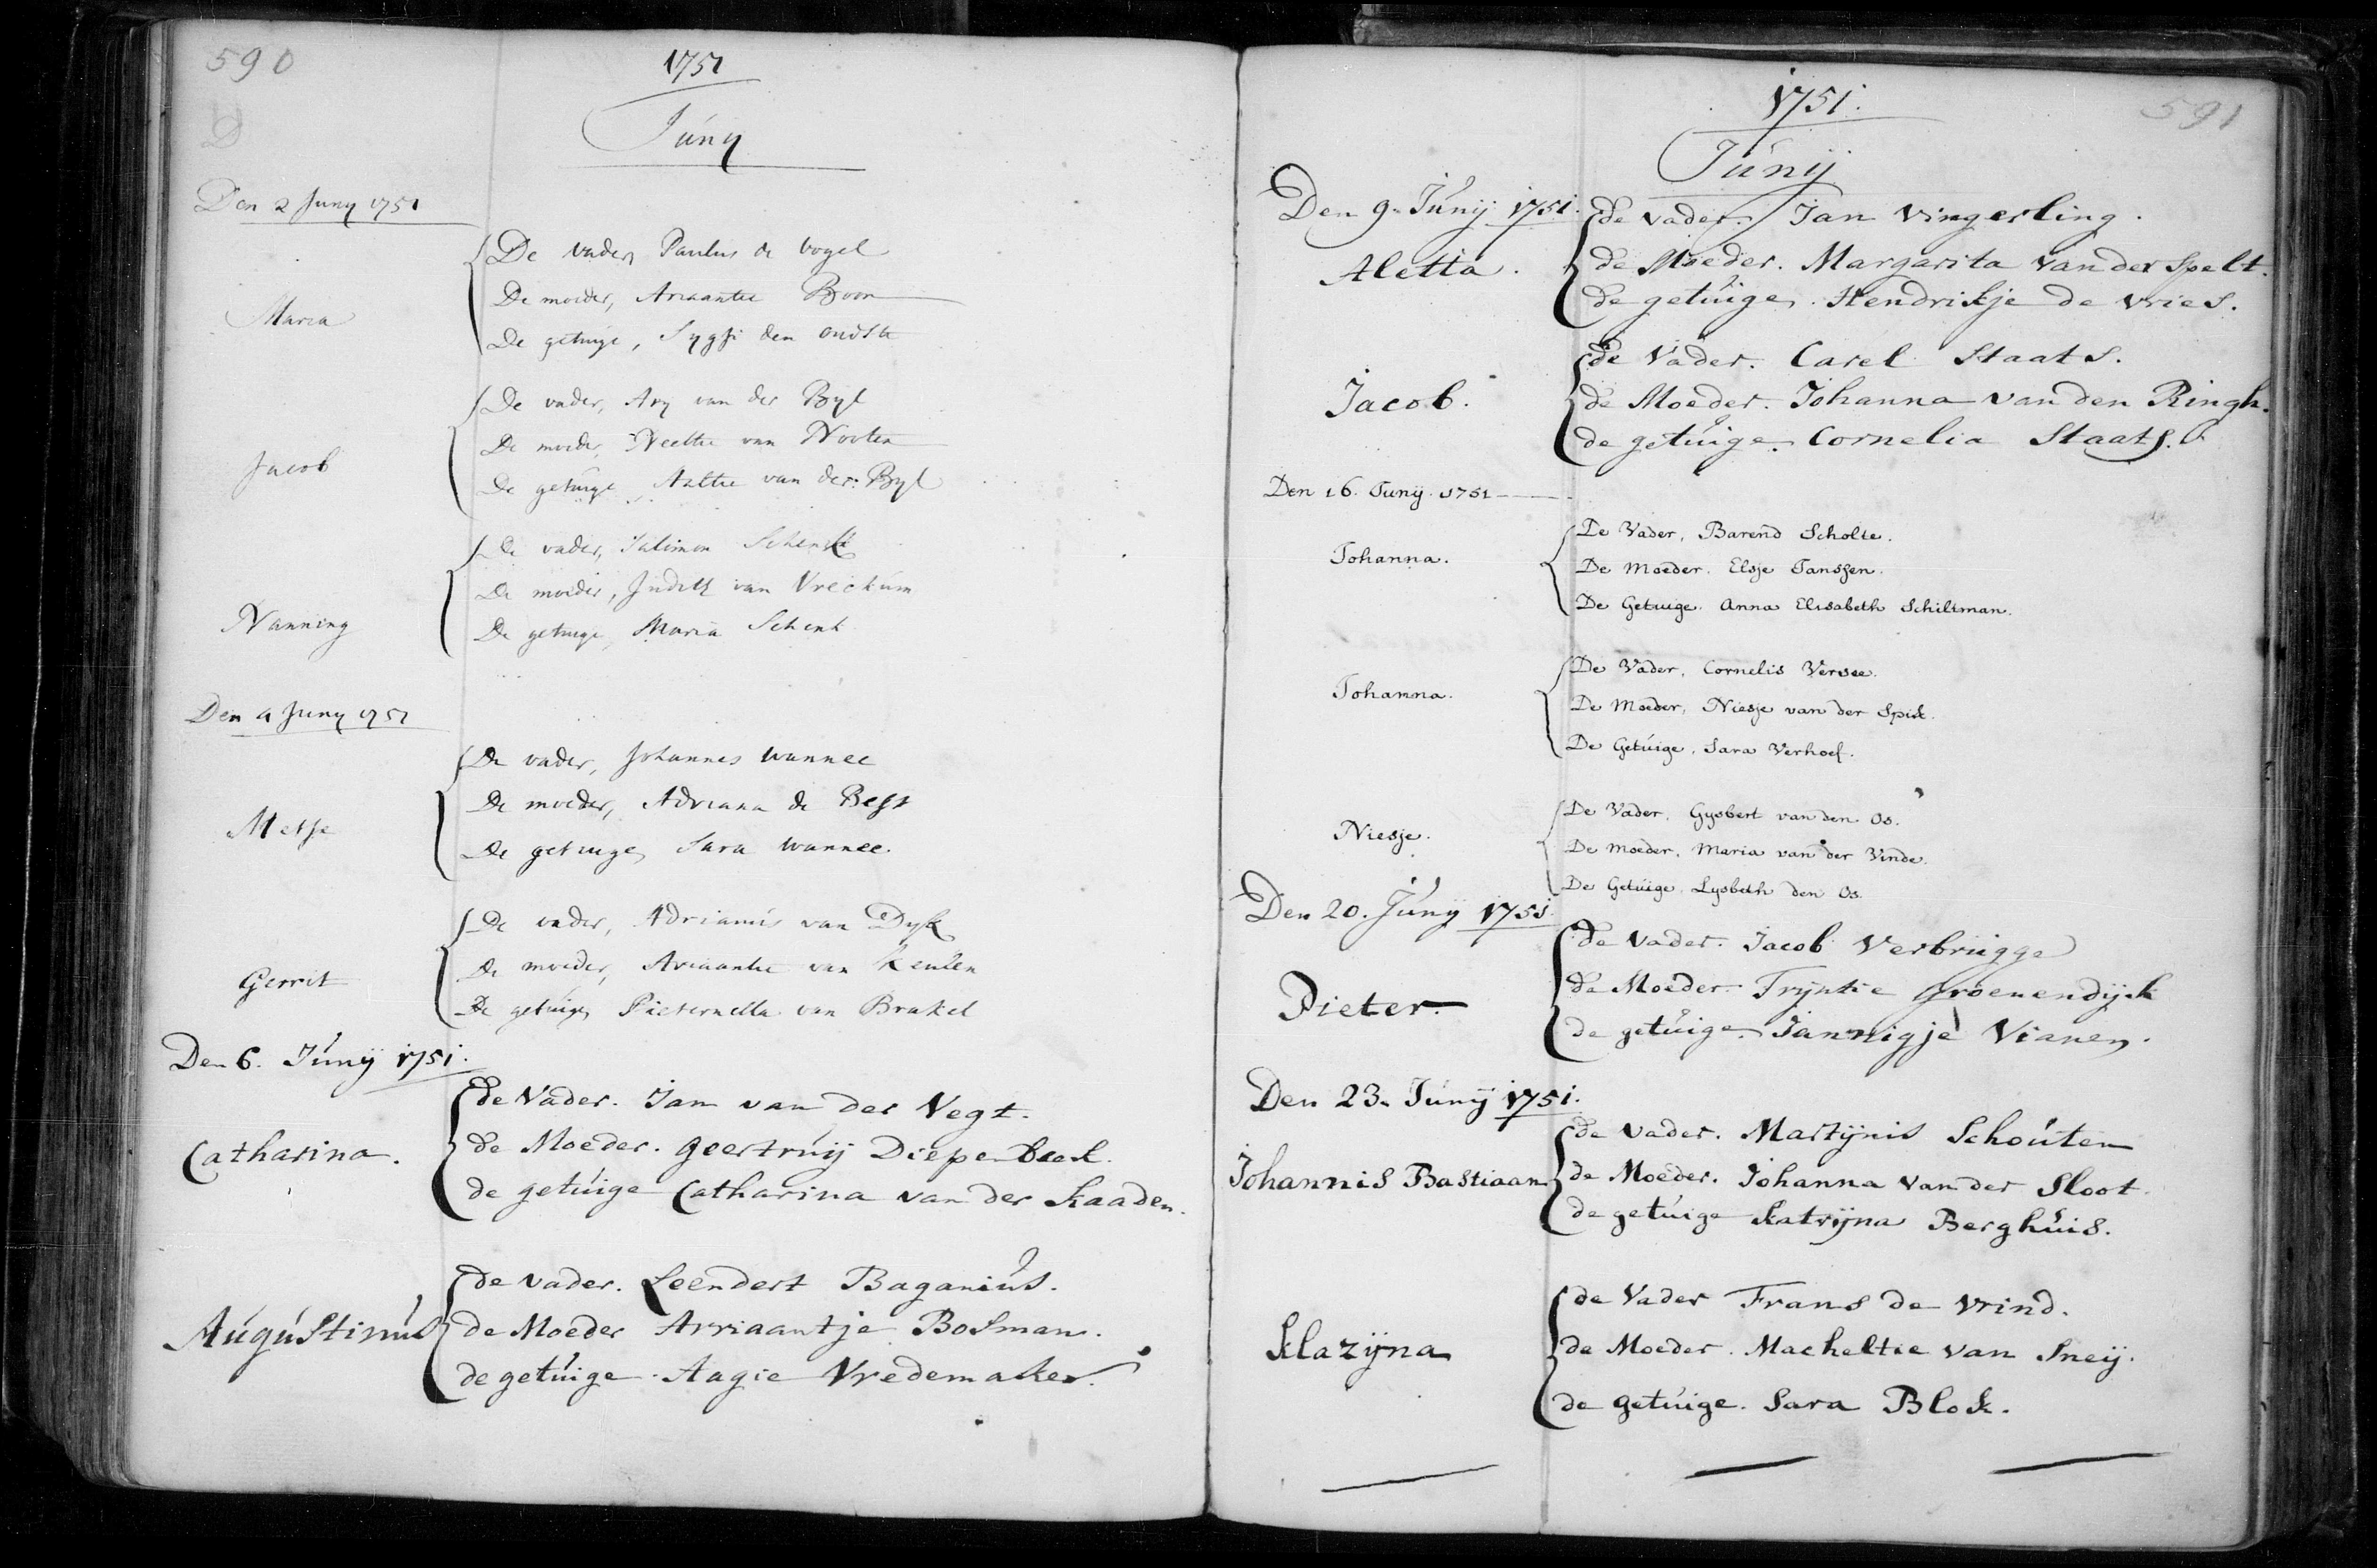 590
1751
Juny
Den 2 Juny 1751
De vader, Paulus de Vogel
Maria
De moeder, Ariaantie Boon
De getuige, Sygje den oudste
De vader, Ary van der Byl
Jacob
De moeder, Neeltie van Nooten
De getuige, Aeltie van der Byl
De vader, Salimon Schenk
Nanning
De moeder, Judith van Vreckum
De getuige, Maria Schenk
Den 4 Juny 1751
De vader, Johannes Wannee
Metje
De moeder, Adriana de Best
De getuige, Sara Wannee.
De vader, Adrianus van Dyk
Gerrit
De moeder, Ariaantie van Keulen
De getuige, Pieternella van Brakel
Den 6. Júnij 1751.
de Vader. Jan van der Vegt.
Catharina.
de Moeder. Geertruij Diepenbeek.
de getúige Catharina van der Kaaden.
de Vader. Leendert Baganiús.
Aúgústinús
de Moeder Arriaantje Bosman.
de getúige. Aagie Vredemaker.
591
1751.
Júnij
Den 9. Júnij 1751.
de Vader. Jan Vingerling.
Aletta.
de Moeder. Margarita van der Spelt.
de getúige. Hendrikje de Vries.
de Vader. Carel Staats.
Jacob.
de Moeder. Johanna van den Ringh.
de getúige. Cornelia Staats.
Den 16. Junij. 1751
De Vader, Barend Scholte.
Johanna.
De Moeder. Elsje Janssen.
De Getuige. Anna Elisabeth Schiltman.
De Vader, Cornelis Versee.
Johanna.
De Moeder, Niesje van der Spik.
De Getúige, Sara Verhoef.
De Vader, Gysbert van den Os.
Niesje.
De Moeder, Maria van der Vinde.
De Getúige, Lysbeth den Os.
Den 20. Júnij 1751
de Vader. Jacob Verbrúgge
Pieter.
de Moeder. Trijntie Groenendijk
de getúige. Jannigje Vianen.
Den 23. Júnij 1751.
de Vader. Martijnis Schoúten
Johannis Bastiaan
de Moeder. Johanna van der Sloot.
de getúige Katrijna Berghúis.
de Vader Frans de Vrind.
Klazijna
de Moeder. Macheltie van Sneij.
de getúige. Sara Blok.